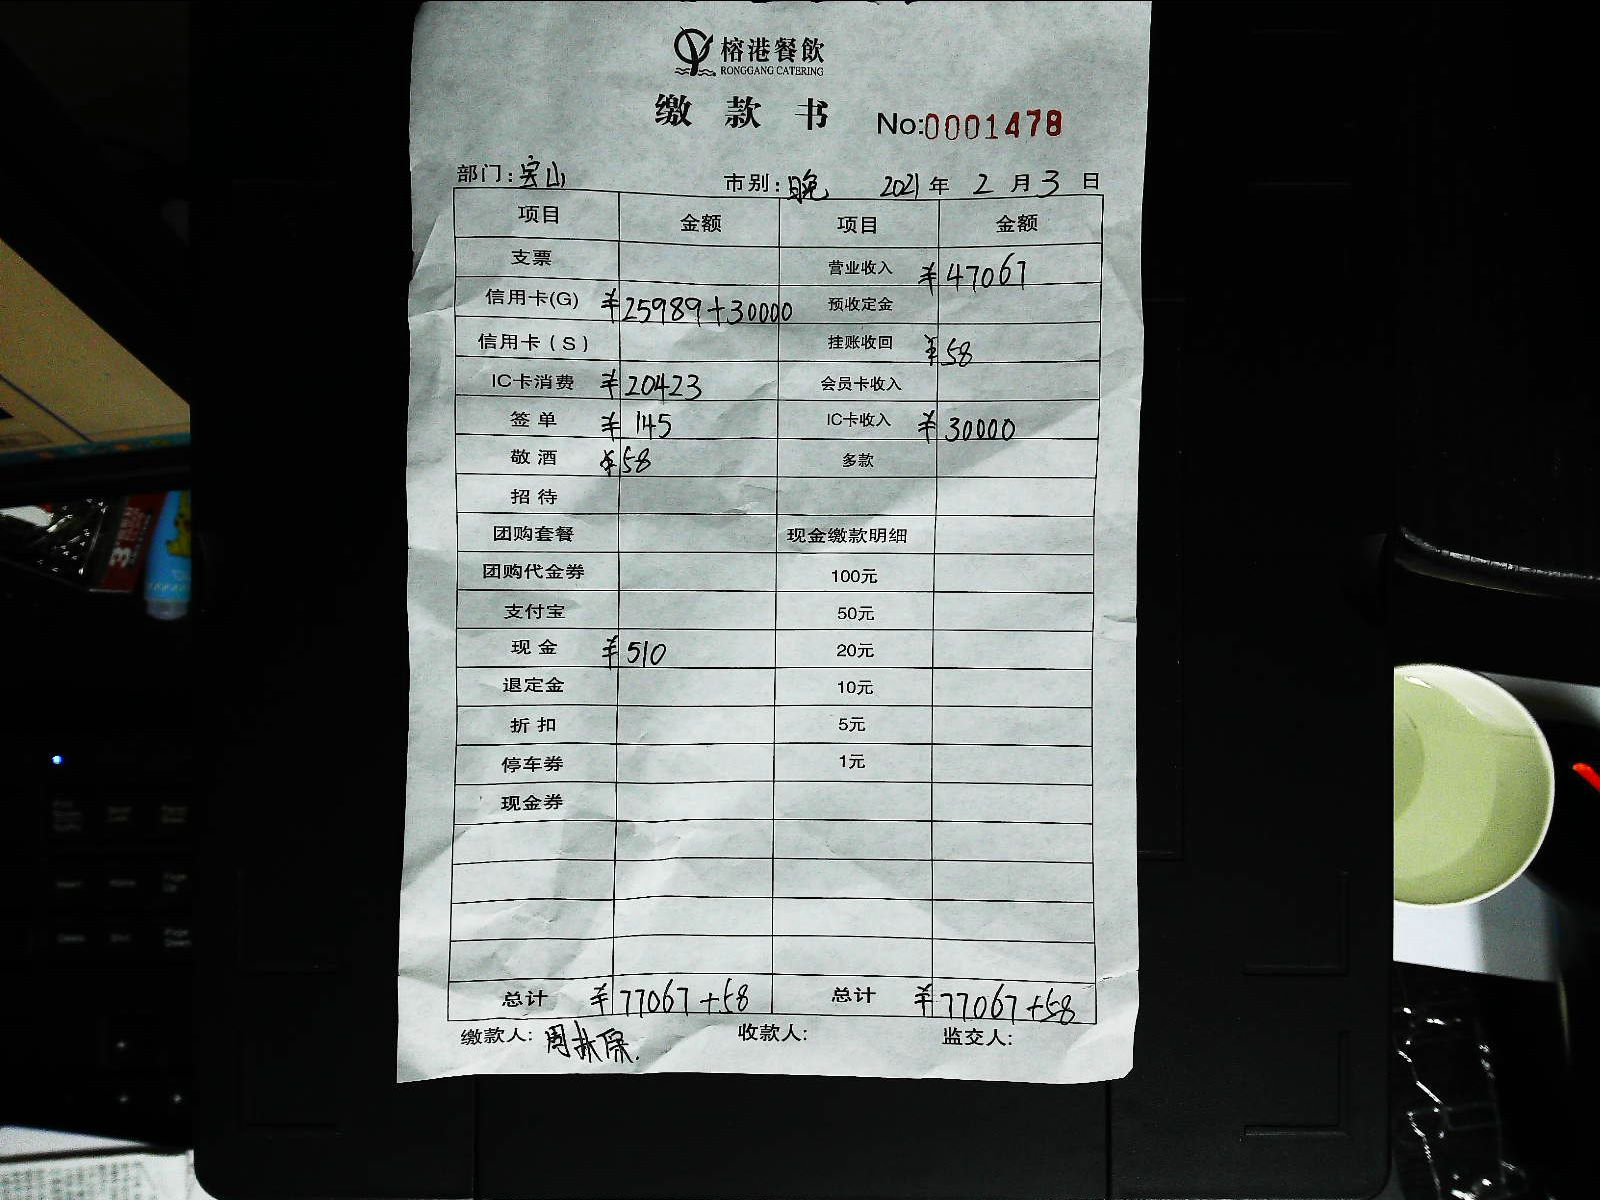 榕港餐飲
RONGGANG CATERING
缴款书 No:0001478
部门:宝山 市别:晚 2021年2月3日
项目 金额 项目 金额
支票 营业收入 ¥47067
信用卡(G) ¥25989+30000 预收定金
信用卡(S) 挂账收回 ¥58
IC卡消费 ¥20423 会员卡收入
签单 ¥145 IC卡收入 ¥30000
敬酒 ¥58 多款
招待
团购套餐 现金缴款明细
团购代金券 100元
支付宝 50元
现金 ¥510 20元
退定金 10元
折扣 5元
停车券 1元
现金券
总计 ¥77067+58 总计 ¥77067+58
缴款人: 收款人: 监交人: